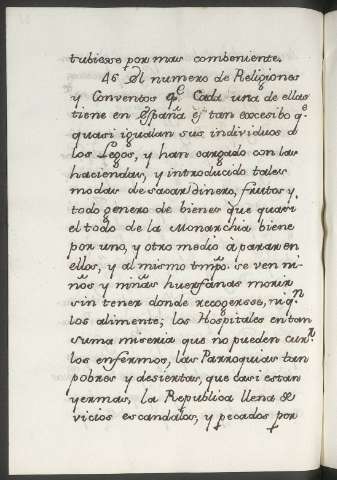 tubiesse por mas combeniente.
46 El numero de Religiones
y Conventos q.e Cada una de ellas
tiene en España es tan excesibo q.e
quasi igualan sus individuos á
los Legos, y han cargado con las
haciendas, y introducido tales
modas de sacar dinero, frutos y
todo genero de bienes que quasi
el todo de la Monarchia biene
por uno, y otro medio à parar en
ellos, y al mismo tmpo. se ven ni-
ños y niñas huerfanas morir
sin tener donde recogersse, ni q.n
los alimente; los Hospitales en tan
suma miseria que no pueden cur.r
los enfermos, las Parroquias tan
pobres y desiertas, que casi estan
yermas, la Republica llena de
vicios escandalos, y pecados por